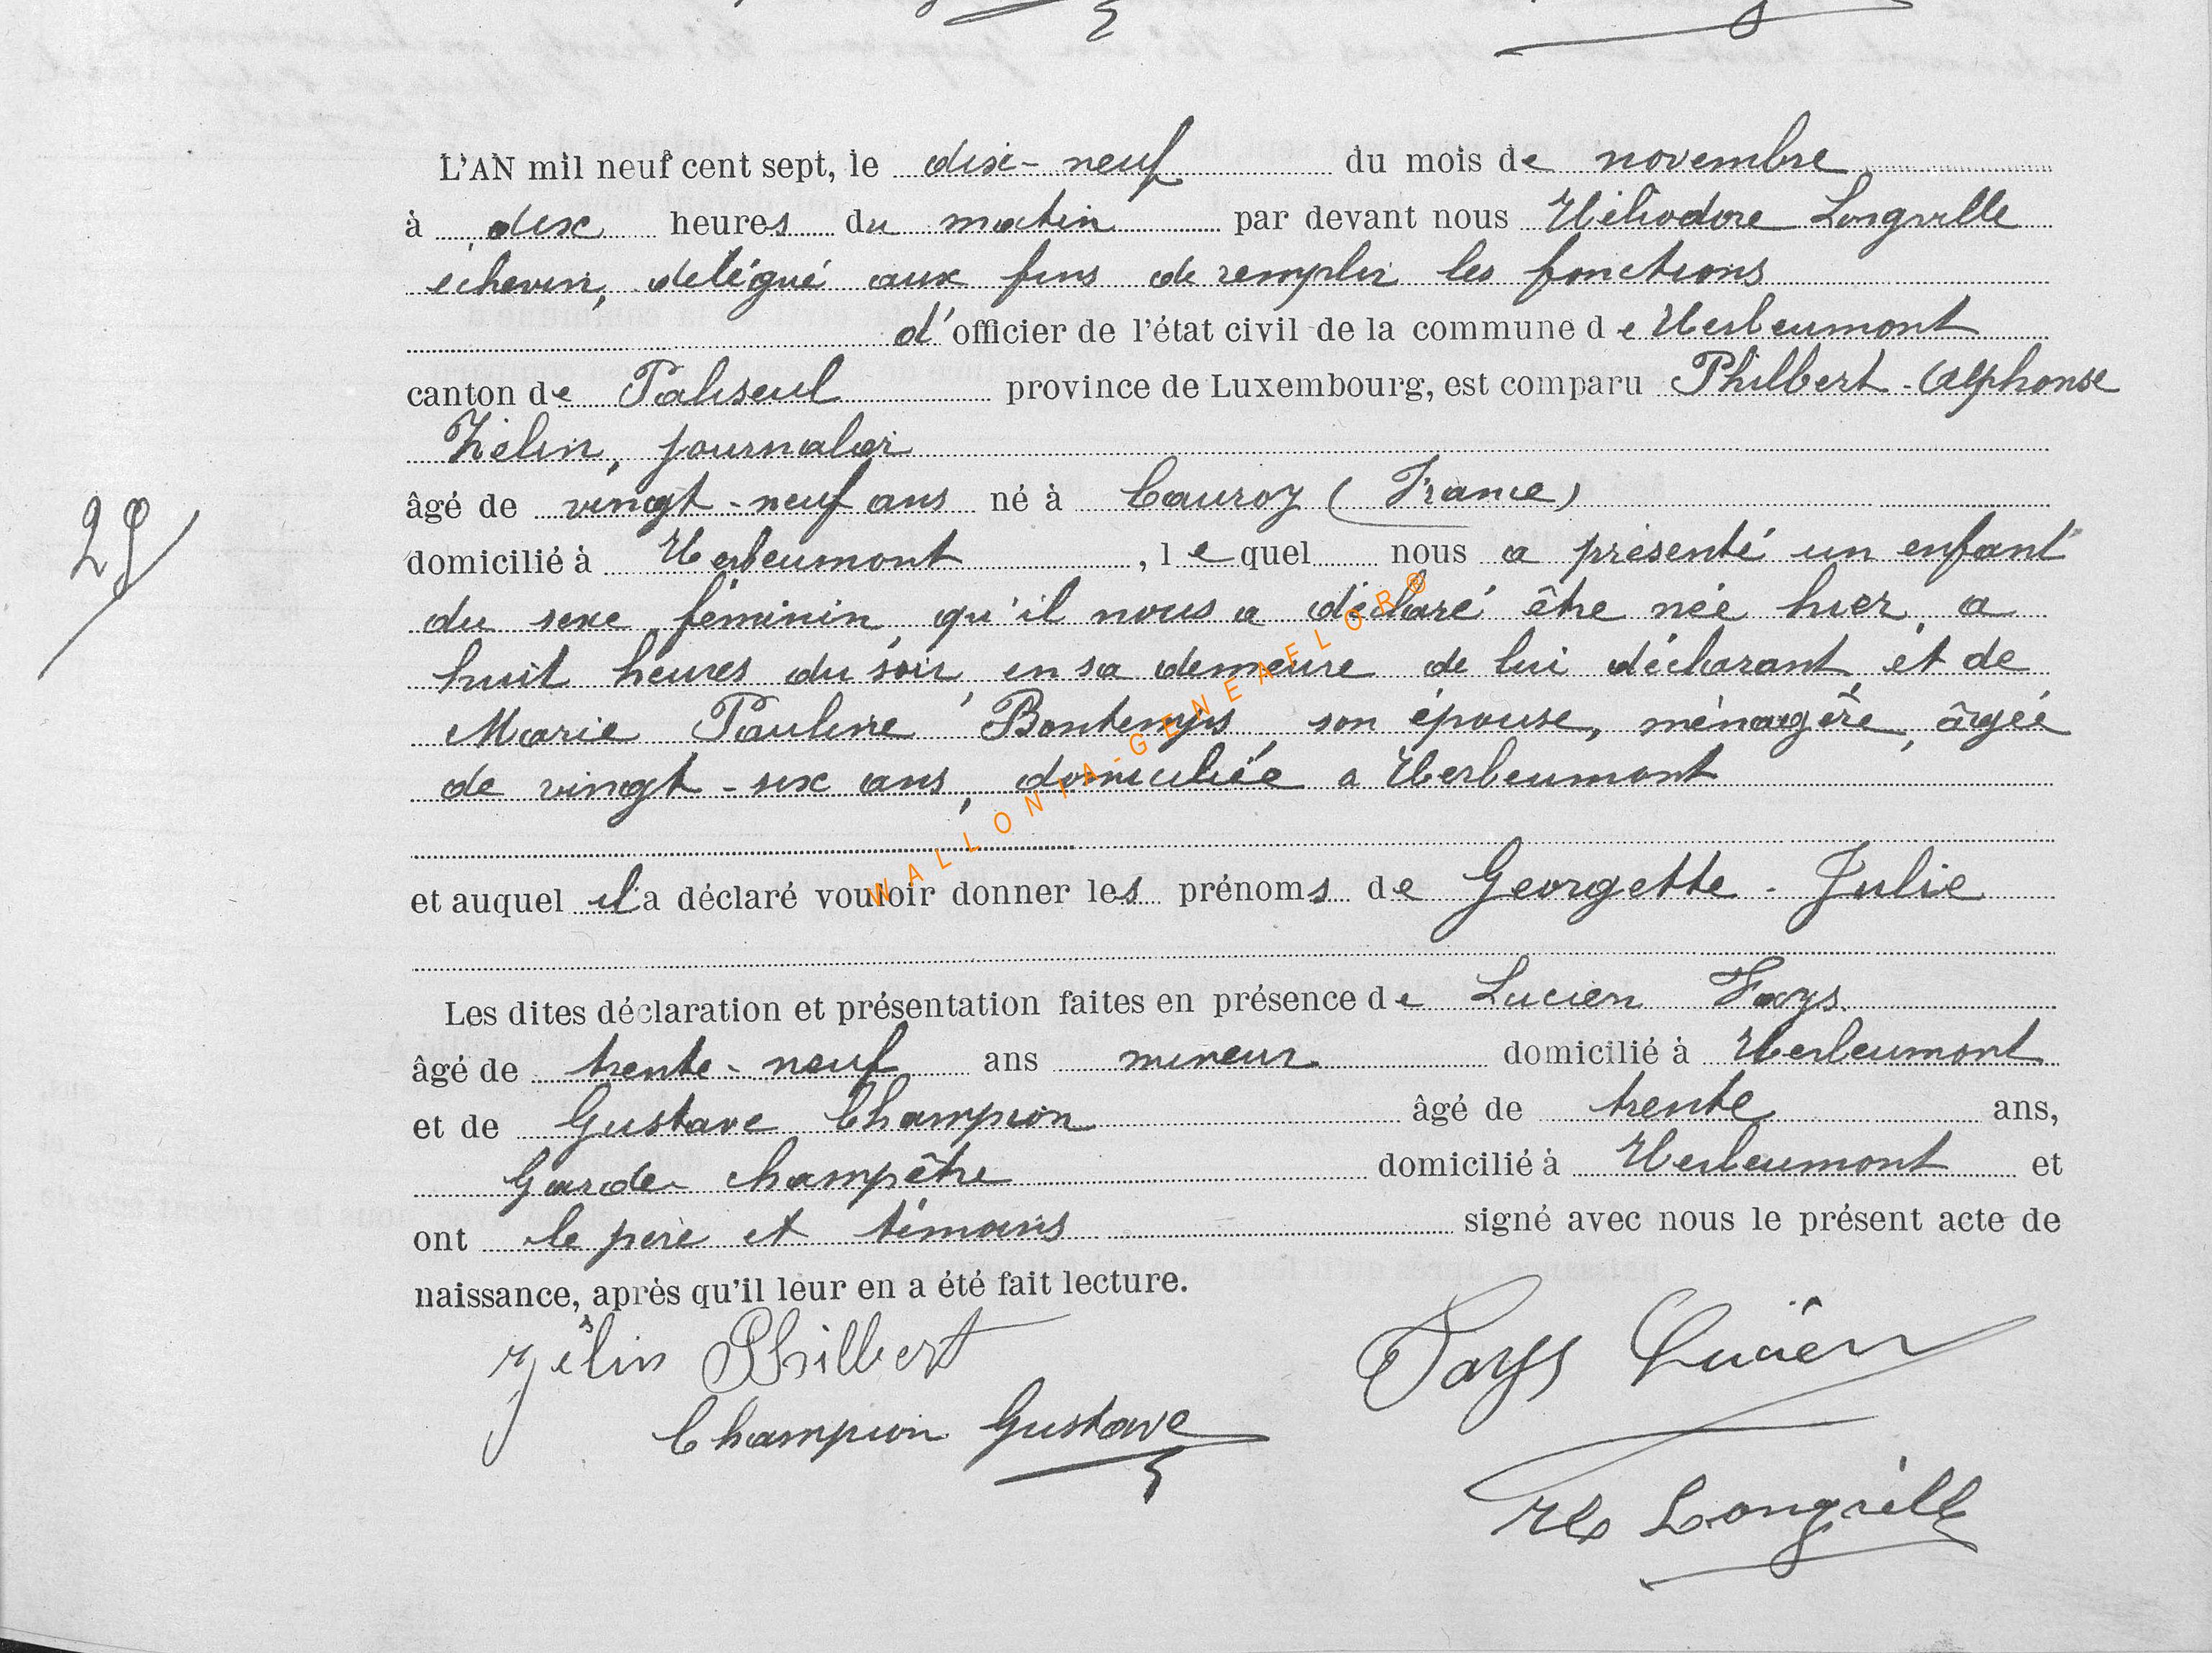 L'AN mil neuf cent sept, le dix-neuf du mois de novembre
à dix heures du matin par devant nous Héliodore Longville
échevin, délégué aux fins de remplir les fonctions
d'officier de l'état civil de la commune de Herbeumont
canton de Paliseul province de Luxembourg, est comparu Philbert-Alphonse
Zélin, journalier
âgé de vingt-neuf ans né à Cauroy (France)
domicilié à Herbeumont, lequel nous a présenté un enfant
du sexe féminin, qu'il nous a déclaré être née hier, a
huit heures du soir, en sa demeure de lui déclarant, et de
Marie Pauline Bontemps son épouse, ménagère, âgée
de vingt-six ans, domiciliée a Herbeumont
et auquel il a déclaré vouloir donner les prénoms de Georgette-Julie
Les dites déclaration et présentation faites en présence de Lucien Fays
âgé de trente-neuf ans mineur domicilié à Herbeumont
et de Gustave Champion âgé de trente ans,
Garde champêtre domicilié à Herbeumont et
ont le père et témoins signé avec nous le présent acte de
naissance, après qu'il leur en a été fait lecture.
Zélin Philbert
Fays Lucien
Champion Gustave
Longville
WALLONIA-GENEAFLOR®